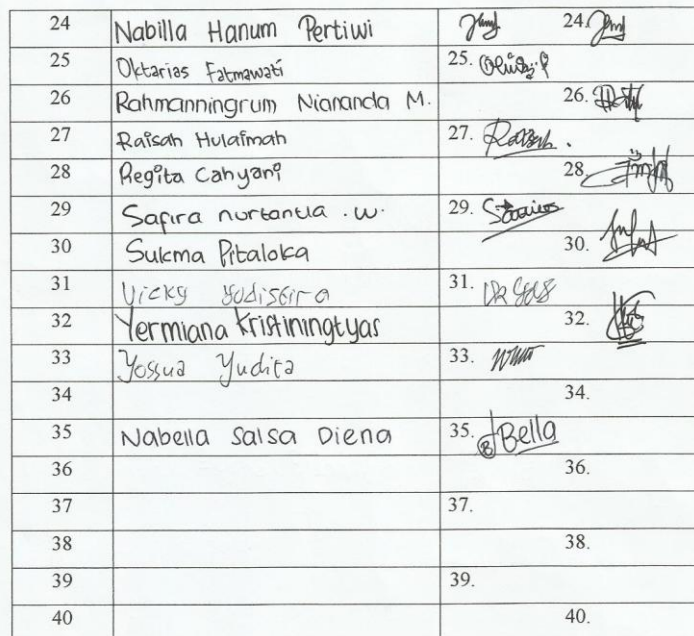 24 Nabilla Hanum Pertiwi 24.
25 Oktarias Fatmawati 25.
26 Rahmanningrum Niananda M. 26.
27 Raisah Hulaimah 27.
28 Regita Cahyani 28.
29 Safira nurtantia .w. 29.
30 Sukma Pitaloka 30.
31 Vicky Yudistira 31.
32 Yermiana Kristiningtyas 32.
33 Yossua Yudita 33.
34 34.
35 Nabella Salsa Diena 35. Bella
36 36.
37 37.
38 38.
39 39.
40 40.